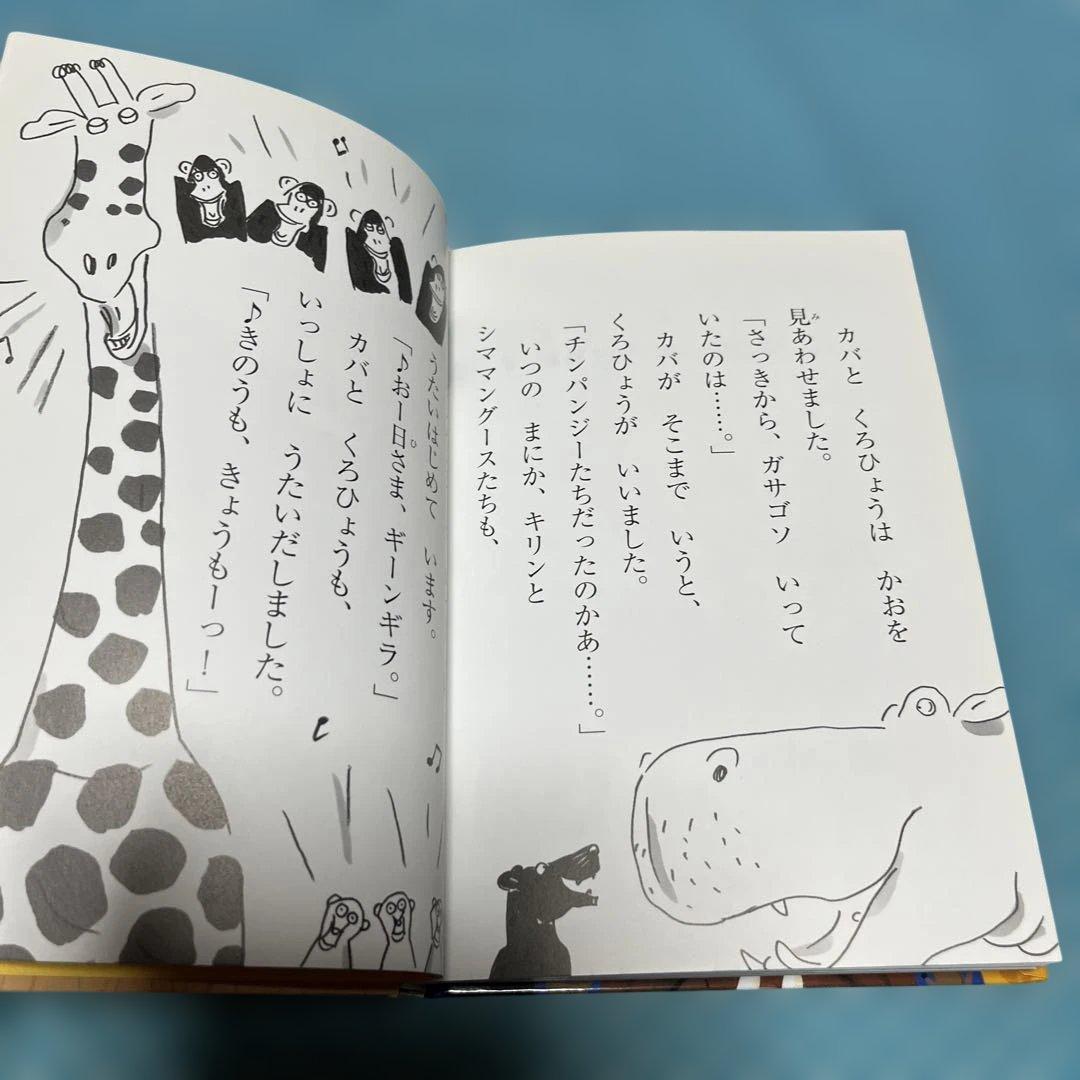 カバと くろひょうは かおを
見あわせました。
「さっきから、ガサゴソ いって
いたのは……。」
カバが そこまで いうと、
くろひょうが いいました。
「チンパンジーたちだったのかあ……。」
いつの まにか、キリンと
シママングースたちも、
うたいはじめて います。
「♪おー日さま、ギーンギラ。」
カバと くろひょうも、
いっしょに うたいだしました。
「♪きのうも、きょうもーっ！」